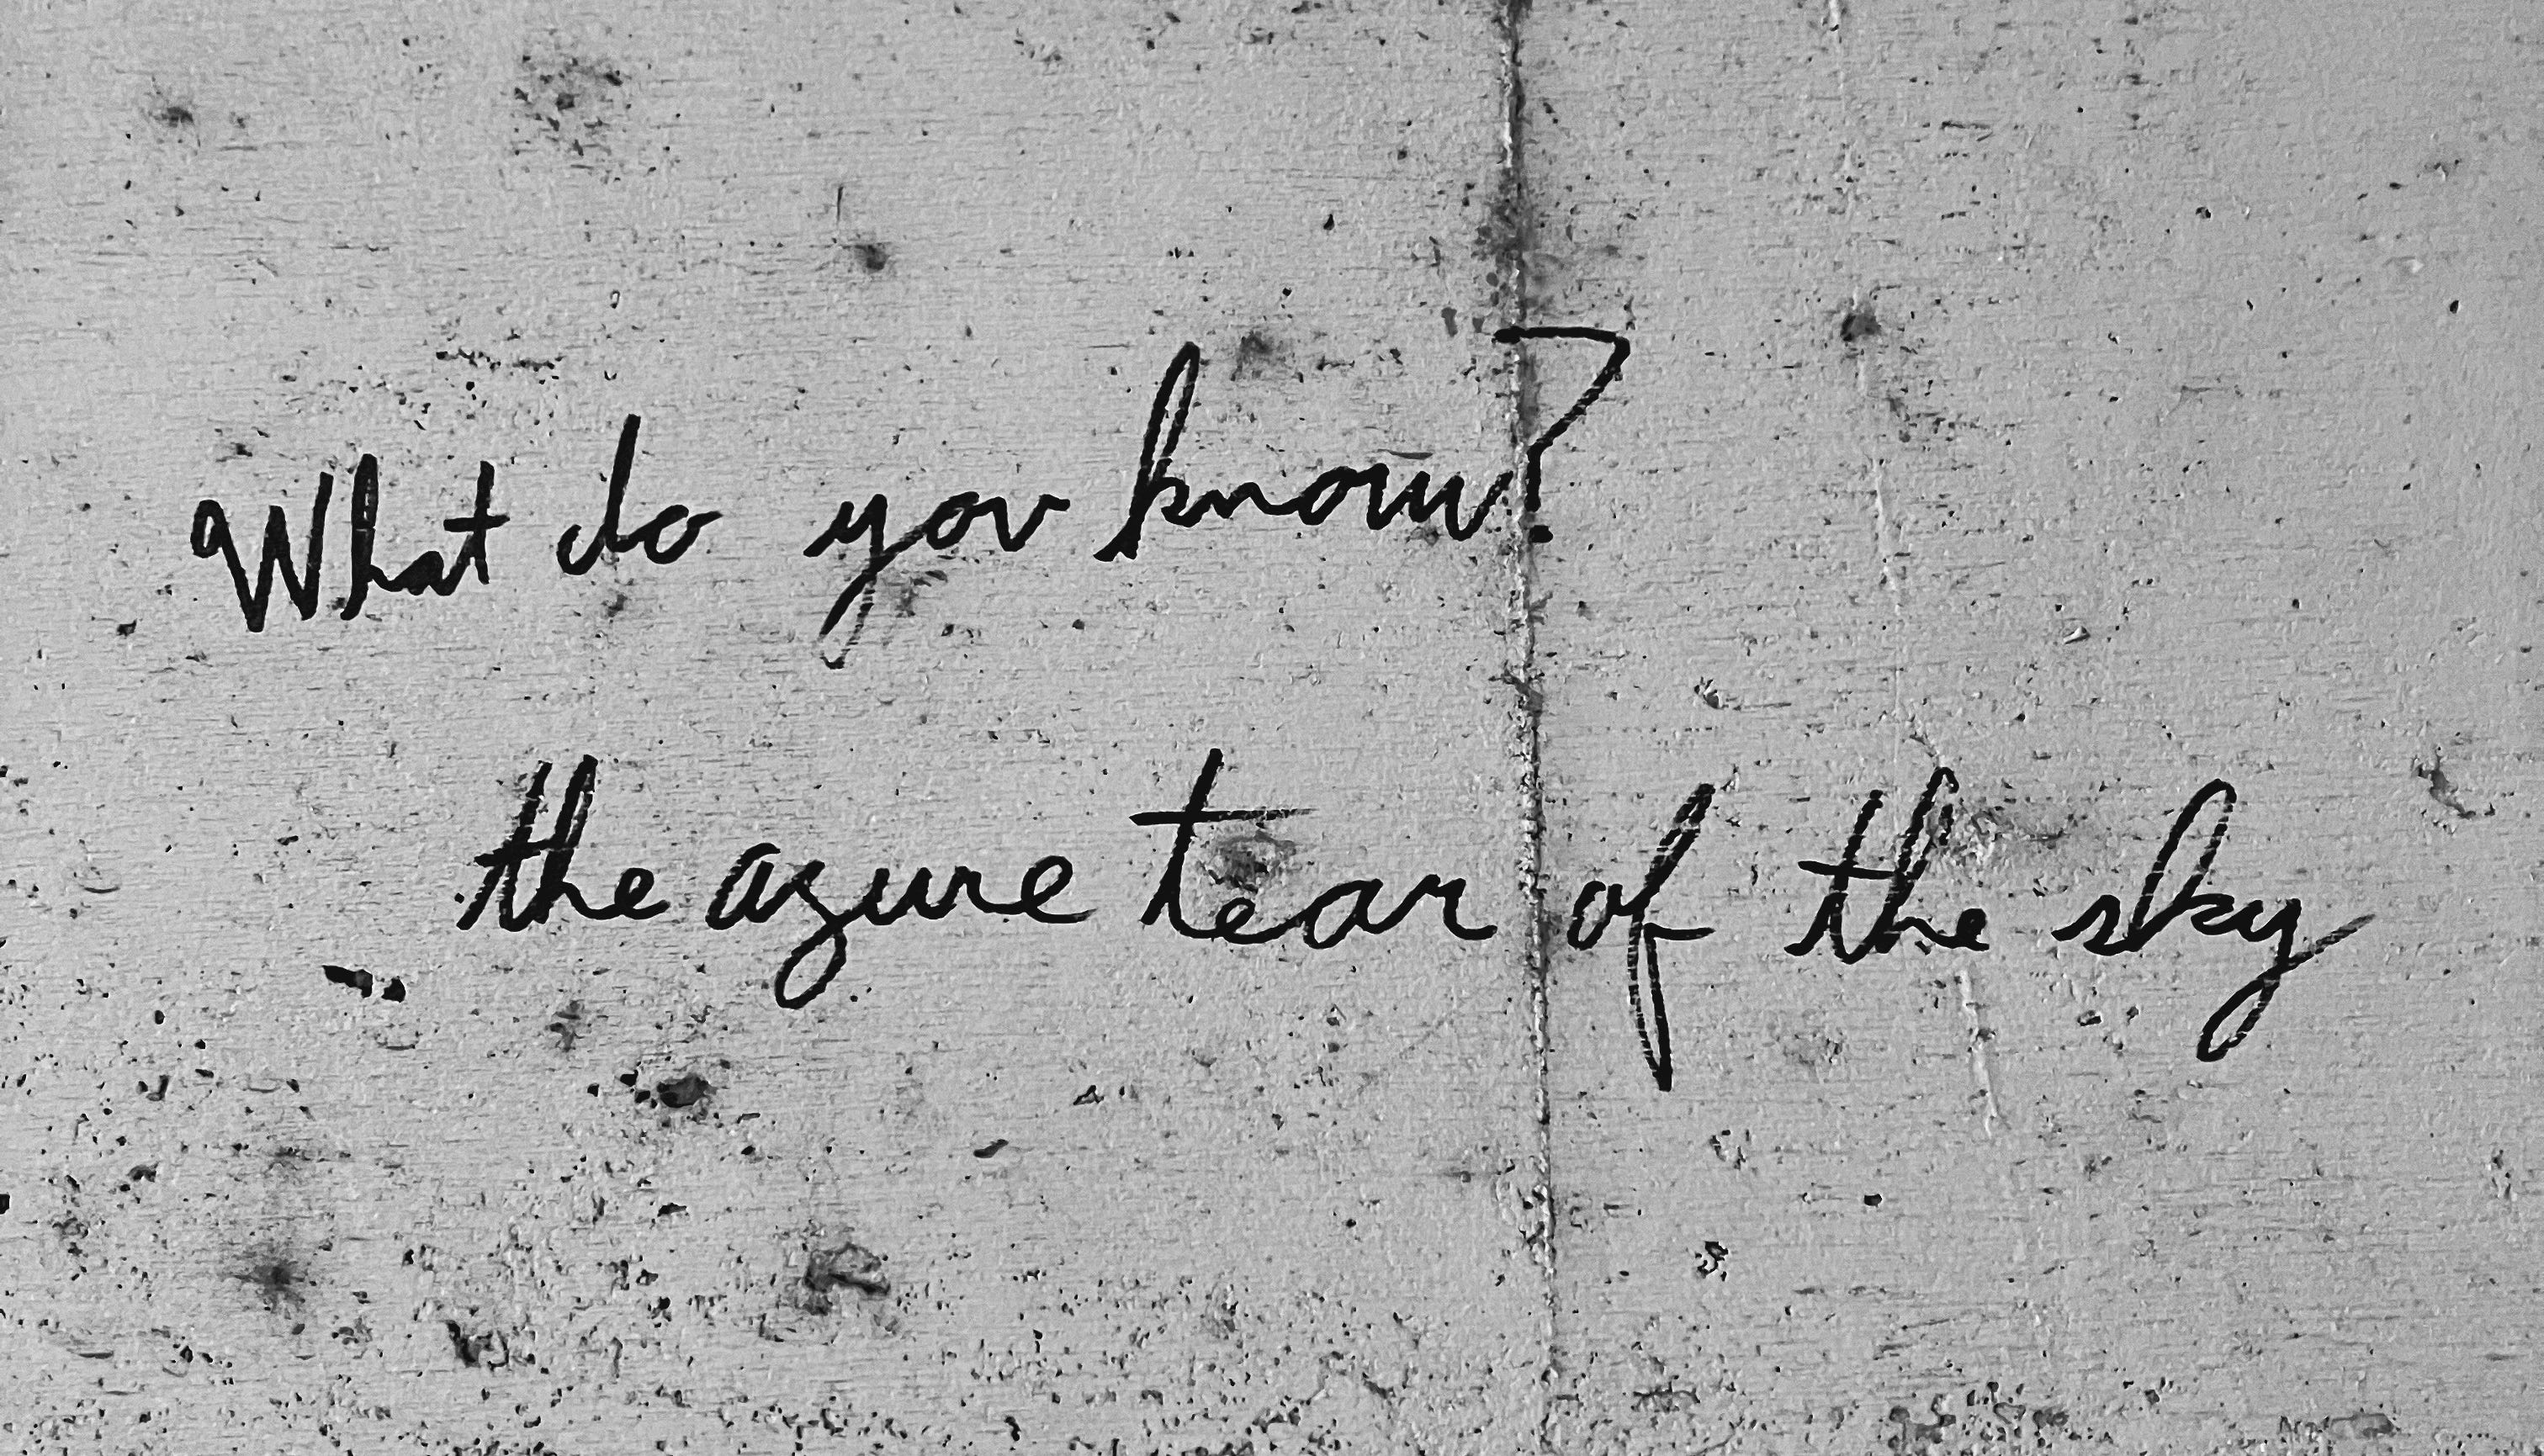 What do you know?
the azure tear of the sky